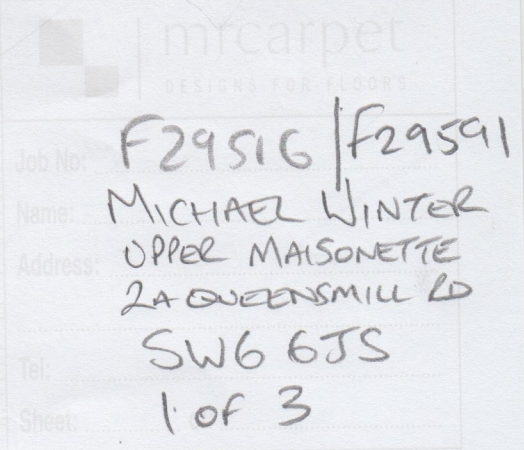 mrcarpet
DESIGNS FOR FLOORS
Job No: F29516 / F29591
Name: MICHAEL WINTER
Address: UPPER MAISONETTE
2A QUEENSMILL RD
SW6 6JS
Tel:
Sheet: 1 of 3